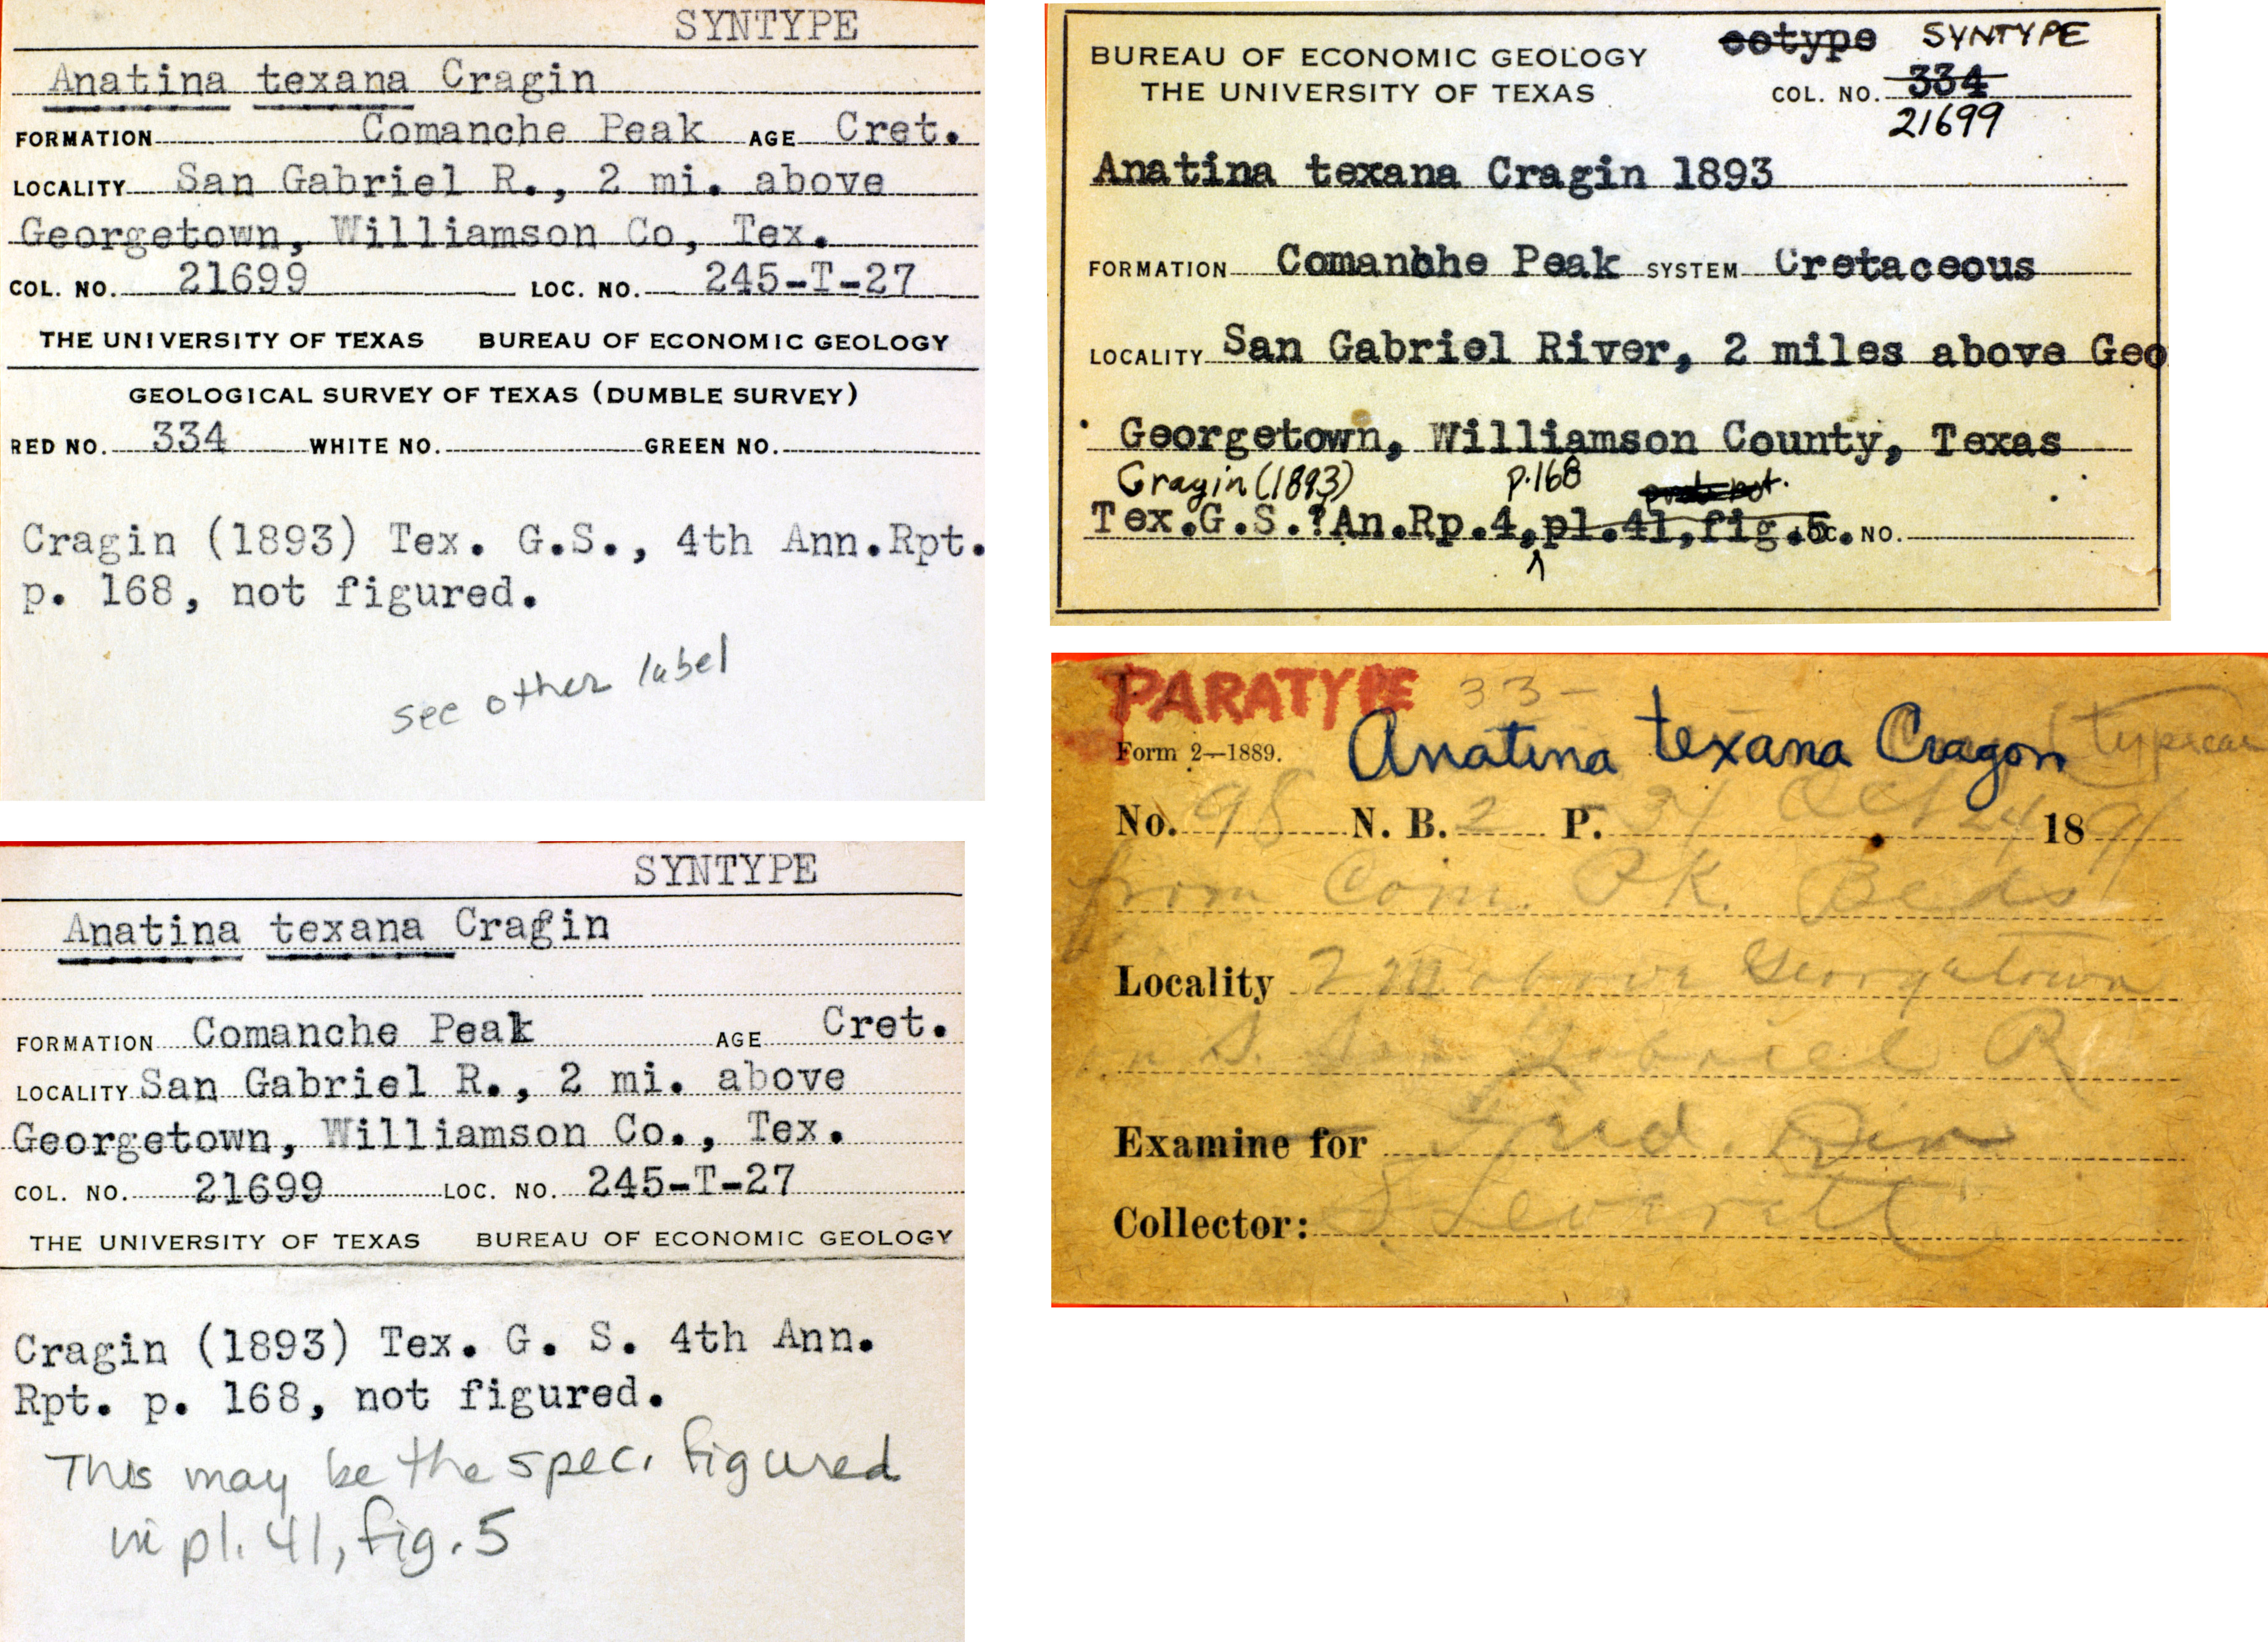 SYNTYPE
Anatina texana Cragin
FORMATION Comanche Peak AGE Cret.
LOCALITY San Gabriel R., 2 mi. above
Georgetown, Williamson Co, Tex.
COL. NO. 21699 LOC. NO. 245-T-27
THE UNIVERSITY OF TEXAS BUREAU OF ECONOMIC GEOLOGY
GEOLOGICAL SURVEY OF TEXAS (DUMBLE SURVEY)
RED NO. 334 WHITE NO. GREEN NO.
Cragin (1893) Tex. G.S., 4th Ann.Rpt.
p. 168, not figured.
see other label
SYNTYPE
Anatina texana Cragin
FORMATION Comanche Peak AGE Cret.
LOCALITY San Gabriel R., 2 mi. above
Georgetown, Williamson Co., Tex.
COL. NO. 21699 LOC. NO. 245-T-27
THE UNIVERSITY OF TEXAS BUREAU OF ECONOMIC GEOLOGY
Cragin (1893) Tex. G. S. 4th Ann.
Rpt. p. 168, not figured.
This may be the spec. figured
in pl. 41, fig. 5
cotype SYNTYPE
BUREAU OF ECONOMIC GEOLOGY
THE UNIVERSITY OF TEXAS COL. NO. 334
21699
Anatina texana Cragin 1893
FORMATION Comanche Peak SYSTEM Cretaceous
LOCALITY San Gabriel River, 2 miles above Geo
Georgetown, Williamson County, Texas
Cragin (1893) p.168
Tex.G.S.?An.Rp.4, pl.41, fig.5. LOC. NO.
PARATYPE 33-
Form 2—1889. Anatina texana Cragon (typical
No. 98 N. B. 2 P. 34 Oct 24 1891
from Com. PK. Beds
Locality 2 m above Georgetown
S. San Gabriel R
Examine for
Collector: S Leverett